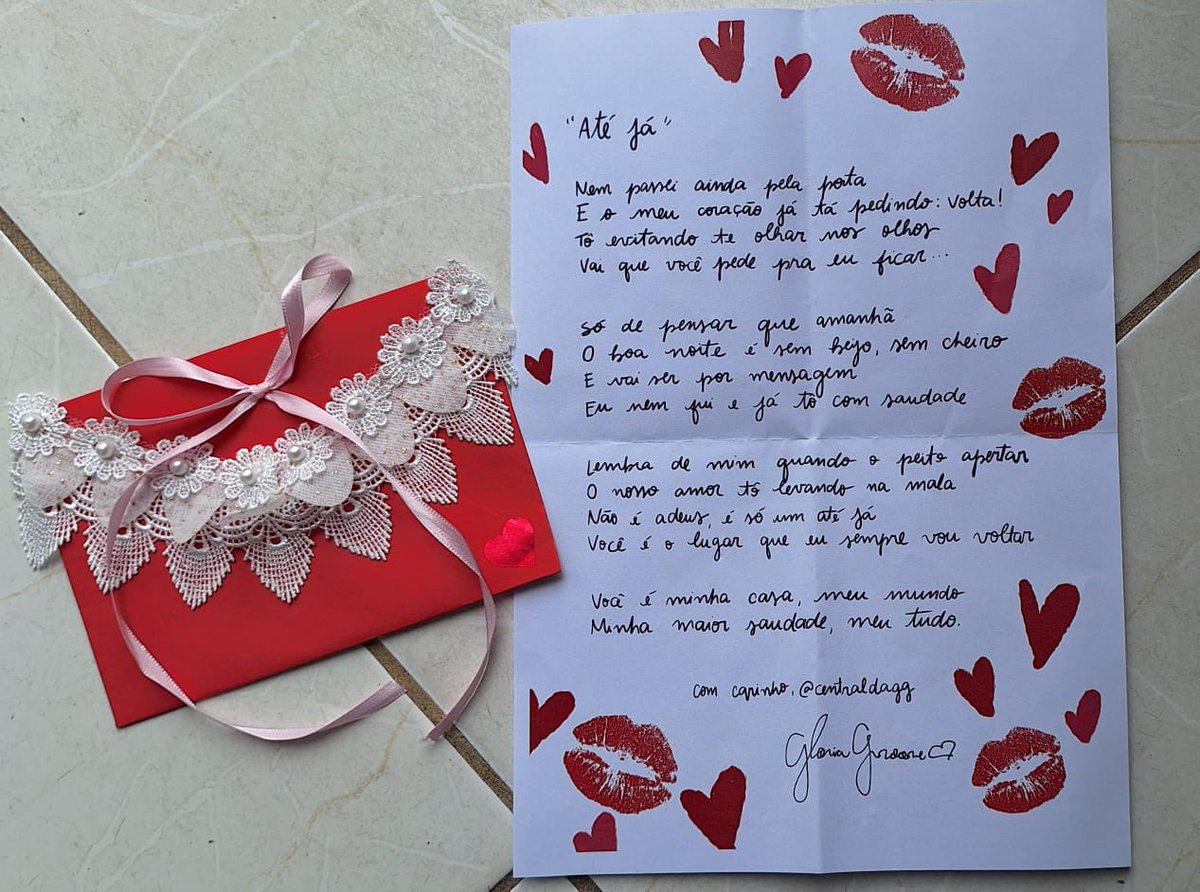 "Até já"
Nem passei ainda pela porta
E o meu coração já tá pedindo: volta!
Tô evitando te olhar nos olhos
Vai que você pede pra eu ficar...
Só de pensar que amanhã
O boa noite é sem beijo, sem cheiro
E vai ser por mensagem
Eu nem fui e já tô com saudade
Lembra de mim quando o peito apertar
O nosso amor tô levando na mala
Não é adeus, é só um até já
Você é o lugar que eu sempre vou voltar
Você é minha casa, meu mundo
Minha maior saudade, meu tudo.
com carinho, @centraldagg
Gloria Groove